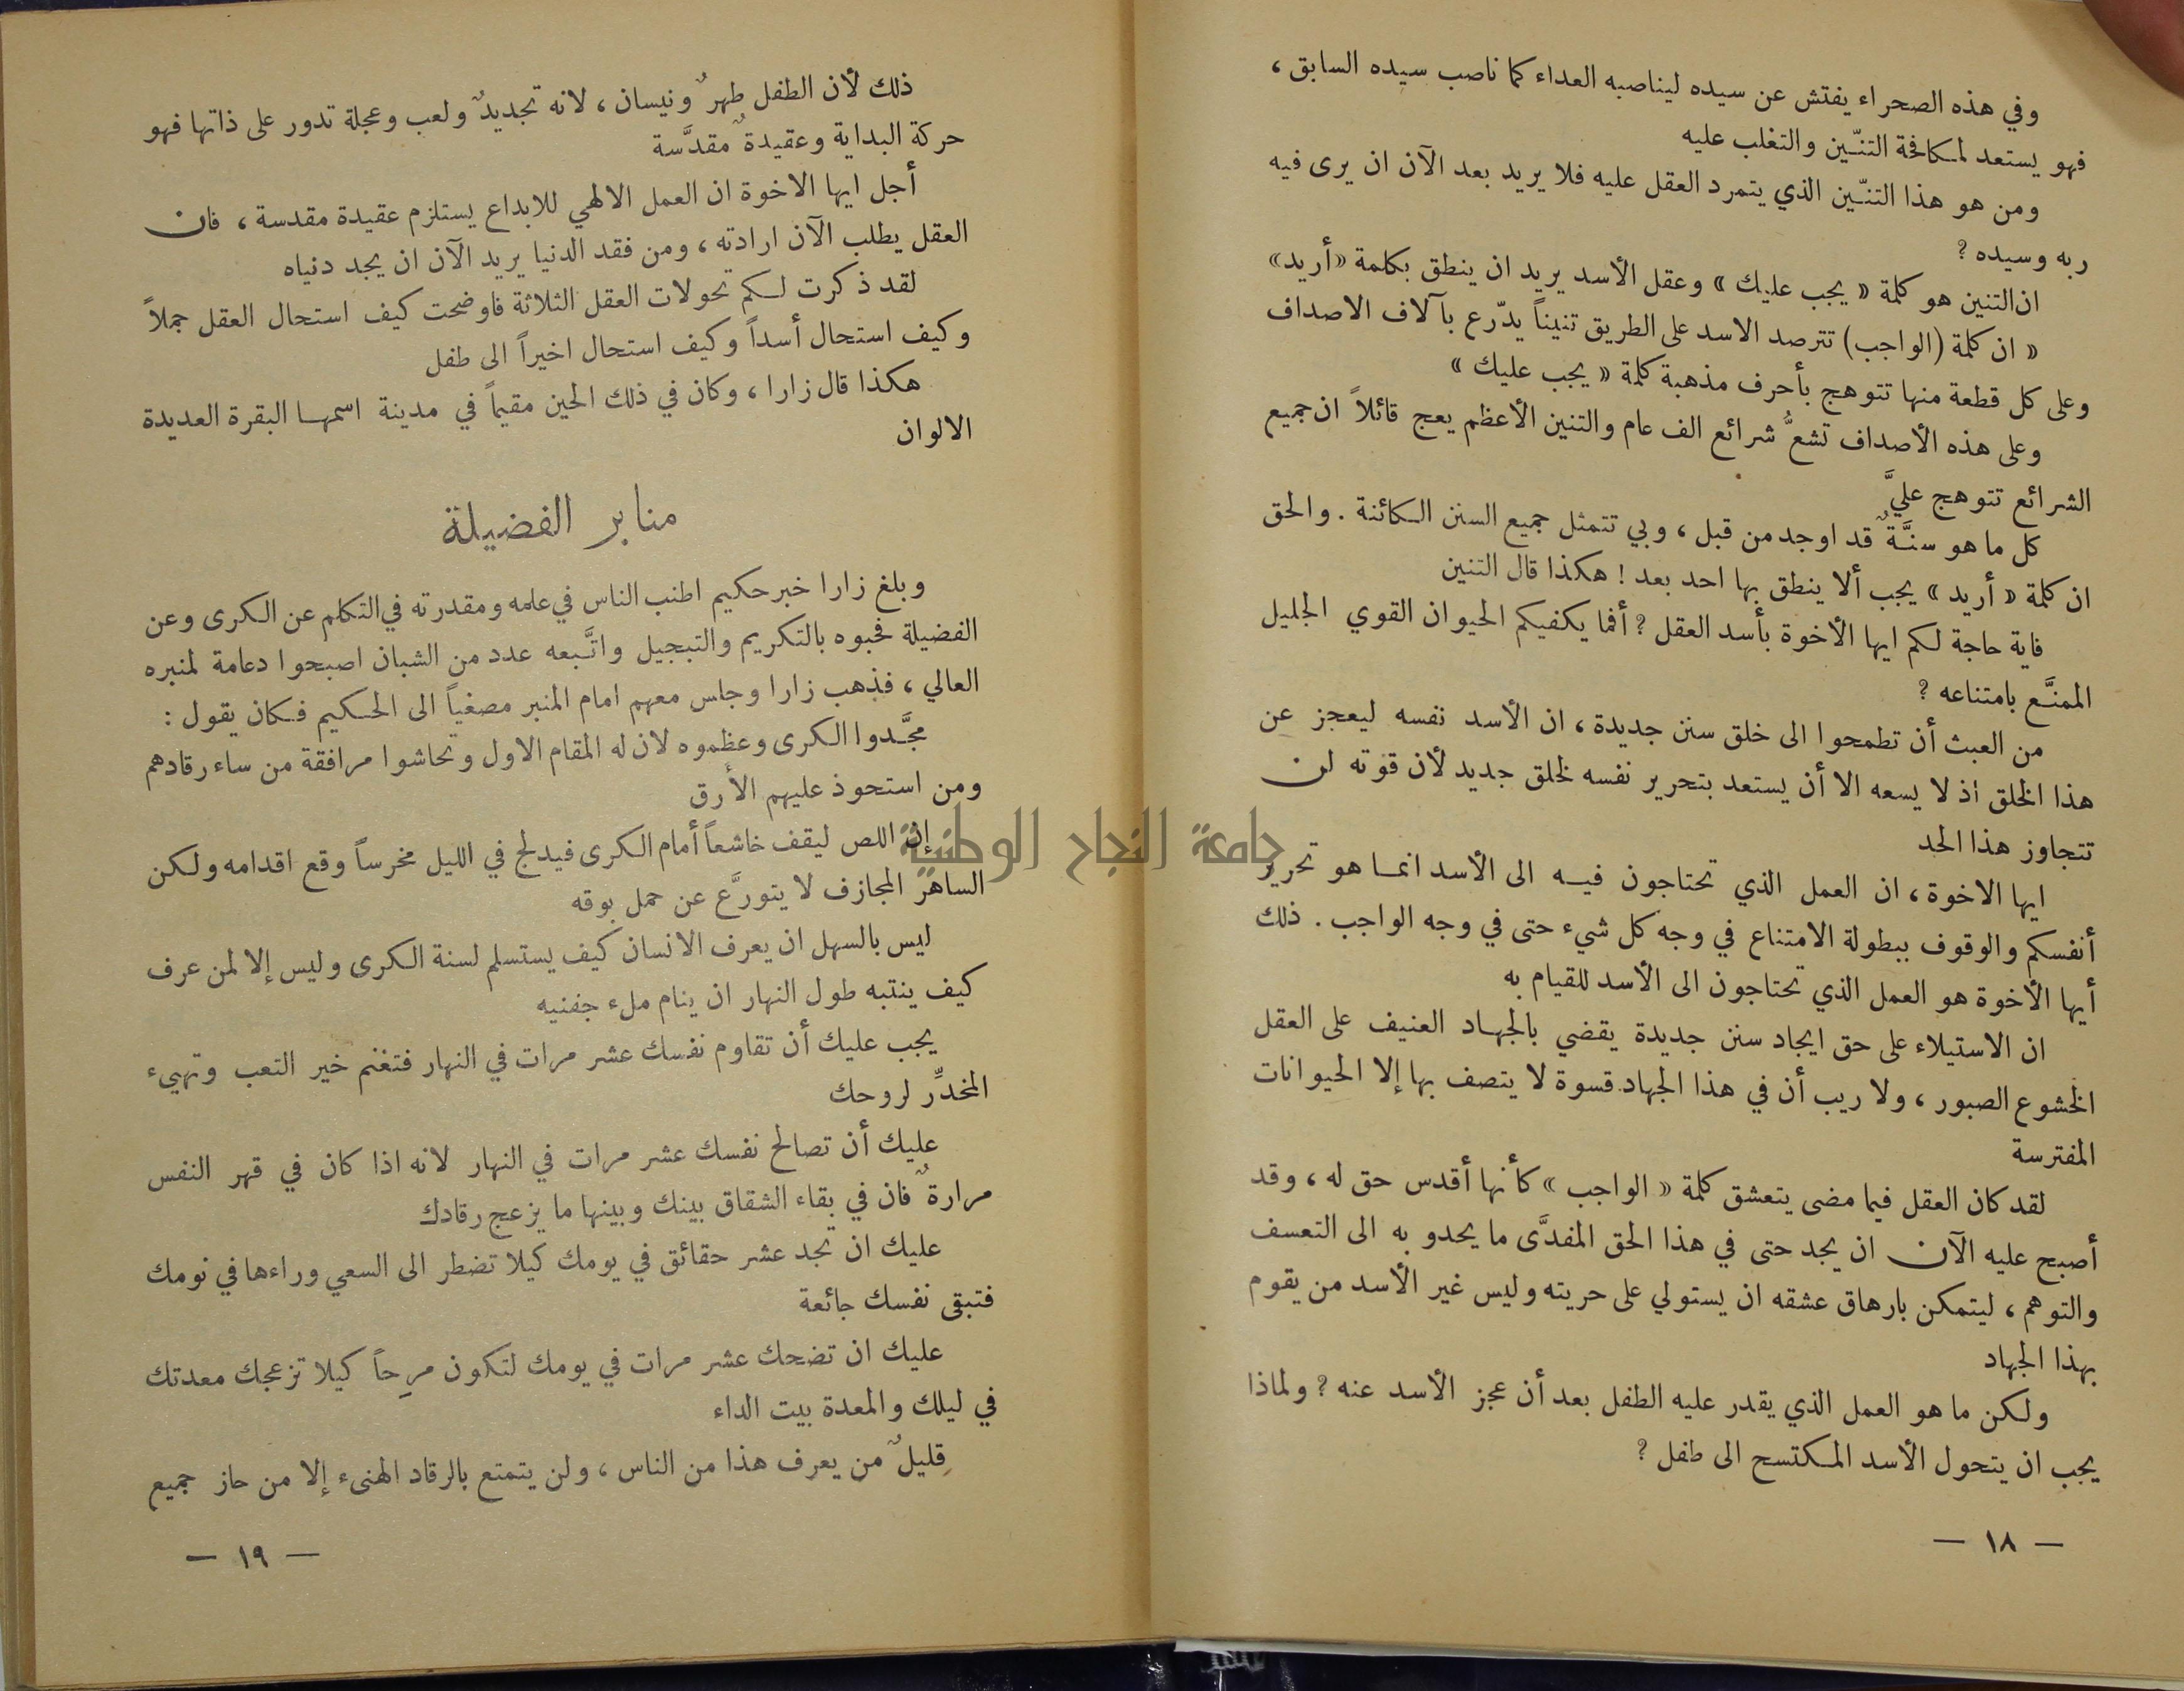 وفي هذه الصحراء يفتش عن سيده ليناصبه العداء كما ناصب سيده السابق ،
فهو يستعد لمكافحة التنّين والتغلب عليه
ومن هو هذا التنّين الذي يتمرد العقل عليه فلا يريد بعد الآن ان يرى فيه
ربه وسيده ؟
ان التنين هو كلمة « يجب عليك » وعقل الأسد يريد ان ينطق بكلمة «أريد»
« ان كلمة (الواجب) تترصد الاسد على الطريق تنيناً يدّرع بآلاف الاصداف
وعلى كل قطعة منها تتوهج بأحرف مذهبة كلمة « يجب عليك »
وعلى هذه الأصداف تشعُّ شرائع الف عام والتنين الأعظم يعج قائلاً ان جميع
الشرائع تتوهج عليَّ
كل ما هو سنَّةٌ قد اوجد من قبل ، وبي تتمثل جميع السنن الكائنة . والحق
ان كلمة « أريد » يجب ألا ينطق بها احد بعد ! هكذا قال التنين
فاية حاجة لكم ايها الأخوة بأسد العقل ؟ أفما يكفيكم الحيوان القوي الجليل
الممنَّع بامتناعه ؟
من العبث أن تطمحوا الى خلق سنن جديدة ، ان الأسد نفسه ليعجز عن
هذا الخلق اذ لا يسعه الا أن يستعد بتحرير نفسه لخلق جديد لأن قوته لن
تتجاوز هذا الحد
ايها الاخوة ، ان العمل الذي تحتاجون فيه الى الأسد انما هو تحرير
أنفسكم والوقوف ببطولة الامتناع في وجه كل شيء حتى في وجه الواجب . ذلك
أيها الأخوة هو العمل الذي تحتاجون الى الأسد للقيام به
ان الاستيلاء على حق ايجاد سنن جديدة يقضي بالجهاد العنيف على العقل
الخشوع الصبور ، ولا ريب أن في هذا الجهاد قسوة لا يتصف بها إلا الحيوانات
المفترسة
لقد كان العقل فيما مضى يتعشق كلمة « الواجب » كأنها أقدس حق له ، وقد
أصبح عليه الآن ان يجد حتى في هذا الحق المفدَّى ما يحدو به الى التعسف
والتوهم ، ليتمكن بارهاق عشقه ان يستولي على حريته وليس غير الأسد من يقوم
بهذا الجهاد
ولكن ما هو العمل الذي يقدر عليه الطفل بعد أن عجز الأسد عنه ؟ ولماذا
يجب ان يتحول الأسد المكتسح الى طفل ؟
— ١٨ —
ذلك لأن الطفل طهرٌ ونيسان ، لانه تجديدٌ ولعب وعجلة تدور على ذاتها فهو
حركة البداية وعقيدةٌ مقدَّسة
أجل ايها الاخوة ان العمل الالهي للابداع يستلزم عقيدة مقدسة ، فان
العقل يطلب الآن ارادته ، ومن فقد الدنيا يريد الآن ان يجد دنياه
لقد ذكرت لكم تحولات العقل الثلاثة فاوضحت كيف استحال العقل جملاً
وكيف استحال أسداً وكيف استحال اخيراً الى طفل
هكذا قال زارا ، وكان في ذلك الحين مقيماً في مدينة اسمها البقرة العديدة
الالوان
منابر الفضيلة
وبلغ زارا خبر حكيم اطنب الناس في علمه ومقدرته في التكلم عن الكرى وعن
الفضيلة فحبوه بالتكريم والتبجيل واتَّبعه عدد من الشبان اصبحوا دعامة لمنبره
العالي ، فذهب زارا وجلس معهم امام المنبر مصغياً الى الحكيم فكان يقول :
مجَّدوا الكرى وعظموه لان له المقام الاول وتحاشوا مرافقة من ساء رقادهم
ومن استحوذ عليهم الأرق
إن اللص ليقف خاشعاً أمام الكرى فيدلج في الليل مخرساً وقع اقدامه ولكن
الساهر المجازف لا يتورَّع عن حمل بوقه
ليس بالسهل ان يعرف الانسان كيف يستسلم لسنة الكرى وليس إلا لمن عرف
كيف ينتبه طول النهار ان ينام ملء جفنيه
يجب عليك أن تقاوم نفسك عشر مرات في النهار فتغنم خير التعب وتهيء
المخدِّر لروحك
عليك أن تصالح نفسك عشر مرات في النهار لانه اذا كان في قهر النفس
مرارةٌ فان في بقاء الشقاق بينك وبينها ما يزعج رقادك
عليك ان تجد عشر حقائق في يومك كيلا تضطر الى السعي وراءها في نومك
فتبقى نفسك جائعة
عليك ان تضحك عشر مرات في يومك لتكون مرِحاً كيلا تزعجك معدتك
في ليلك والمعدة بيت الداء
قليلٌ من يعرف هذا من الناس ، ولن يتمتع بالرقاد الهنيء إلا من حاز جميع
— ١٩ —
جامعة النجاح الوطنية